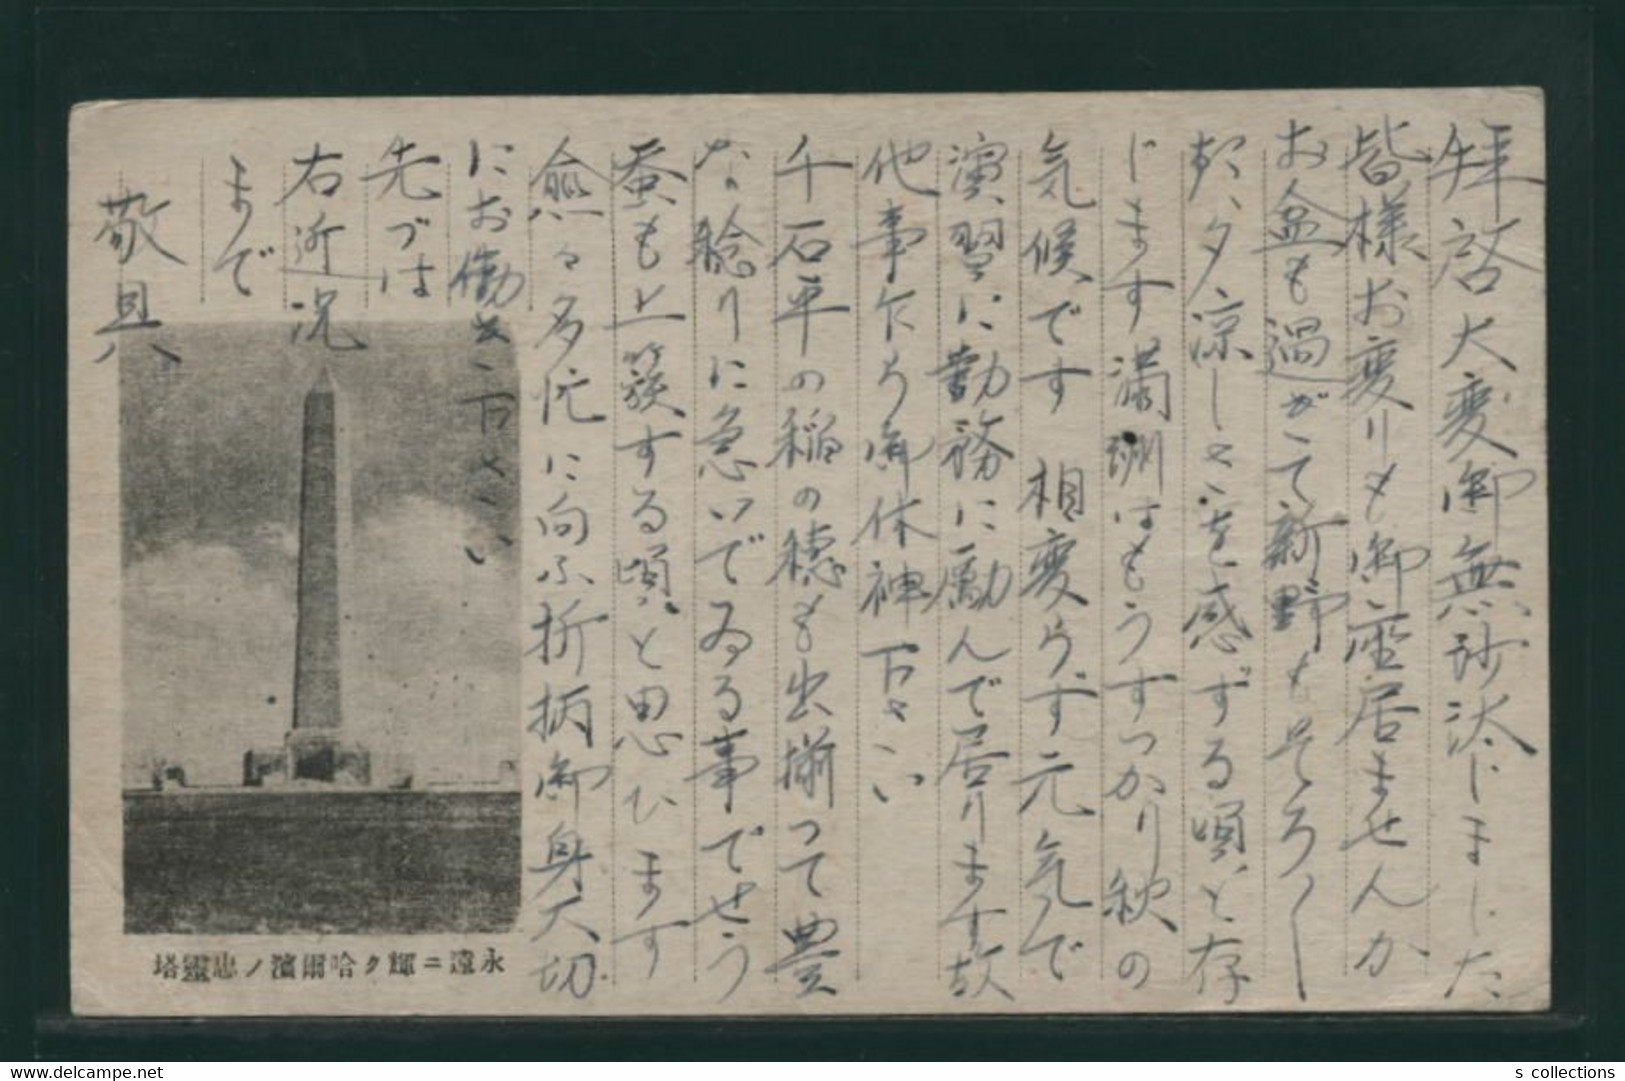 拝啓大変御無沙汰しました
皆様お変りも御座居ませんか
お盆も過ぎて新野もそろ〱
朝夕涼しさを感ずる頃と存
じます満洲はもうすつかり秋の
気候です相変らず元気で
演習に勤務に励んで居ります故
他事乍ら御休神下さい
千石平の稲の穂も出揃つて豊
な稔りに急いでゐる事でせう
蚕も上簇する頃と思ひます
愈々多忙に向ふ折柄御身大切
にお働き下さい
先づは
右近況
まで
敬具
永遠ニ輝ク哈爾濱ノ忠靈塔
s collections